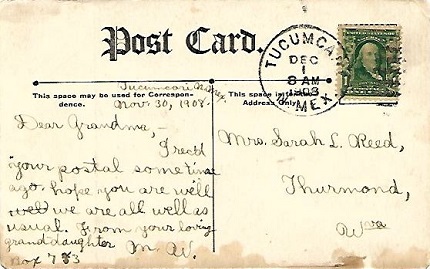 Post Card.
TUCUMCARI
DEC
1
8 AM
1908
N. MEX
This space may be used for Correspon-
dence.
This space is
Address Only.
Tucumcari N. Mex.
Nov. 30, 1908.
Dear Grandma,-
I rec'd
your postal some time
ago, hope you are well
well we are all well as
usual. From your loving
granddaughter M. W.
Box 733
Mrs. Sarah L. Reed,
Thurmond,
W va